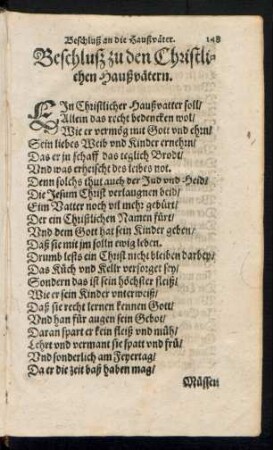 Beschluß an die Haußväter. 148
Beschlusz zu den Christli-
chen Haußvätern.
EIn Christlicher Haußvatter soll/
Allein das recht bedencken wol/
Wie er vermög mit Gott vnd ehrn/
Sein liebes Weib vnd Kinder ernehrn/
Das er jn schaff das teglich Brodt/
Vnd was erheischt des leibes not.
Denn solchs thut auch der Jud vnd Heid/
Die Jesum Christ verlaugnen beid/
Eim Vatter noch vil mehr gebürt/
Der ein Christlichen Namen fürt/
Vnd dem Gott hat sein Kinder geben/
Daß sie mit jm solln ewig leben.
Drumb lests ein Christ nicht bleiben darbey/
Das Küch vnd Kellr versorget sey/
Sondern das ist sein höchster fleiß/
Wie er sein Kinder vnterweiß/
Daß sie recht lernen kennen Gott/
Vnd han für augen sein Gebot/
Daran spart er kein fleiß vnd müh/
Lehrt vnd vermant sie spatt vnd frü/
Vnd sonderlich am Feyertag/
Da er die zeit baß haben mag/
Müssen